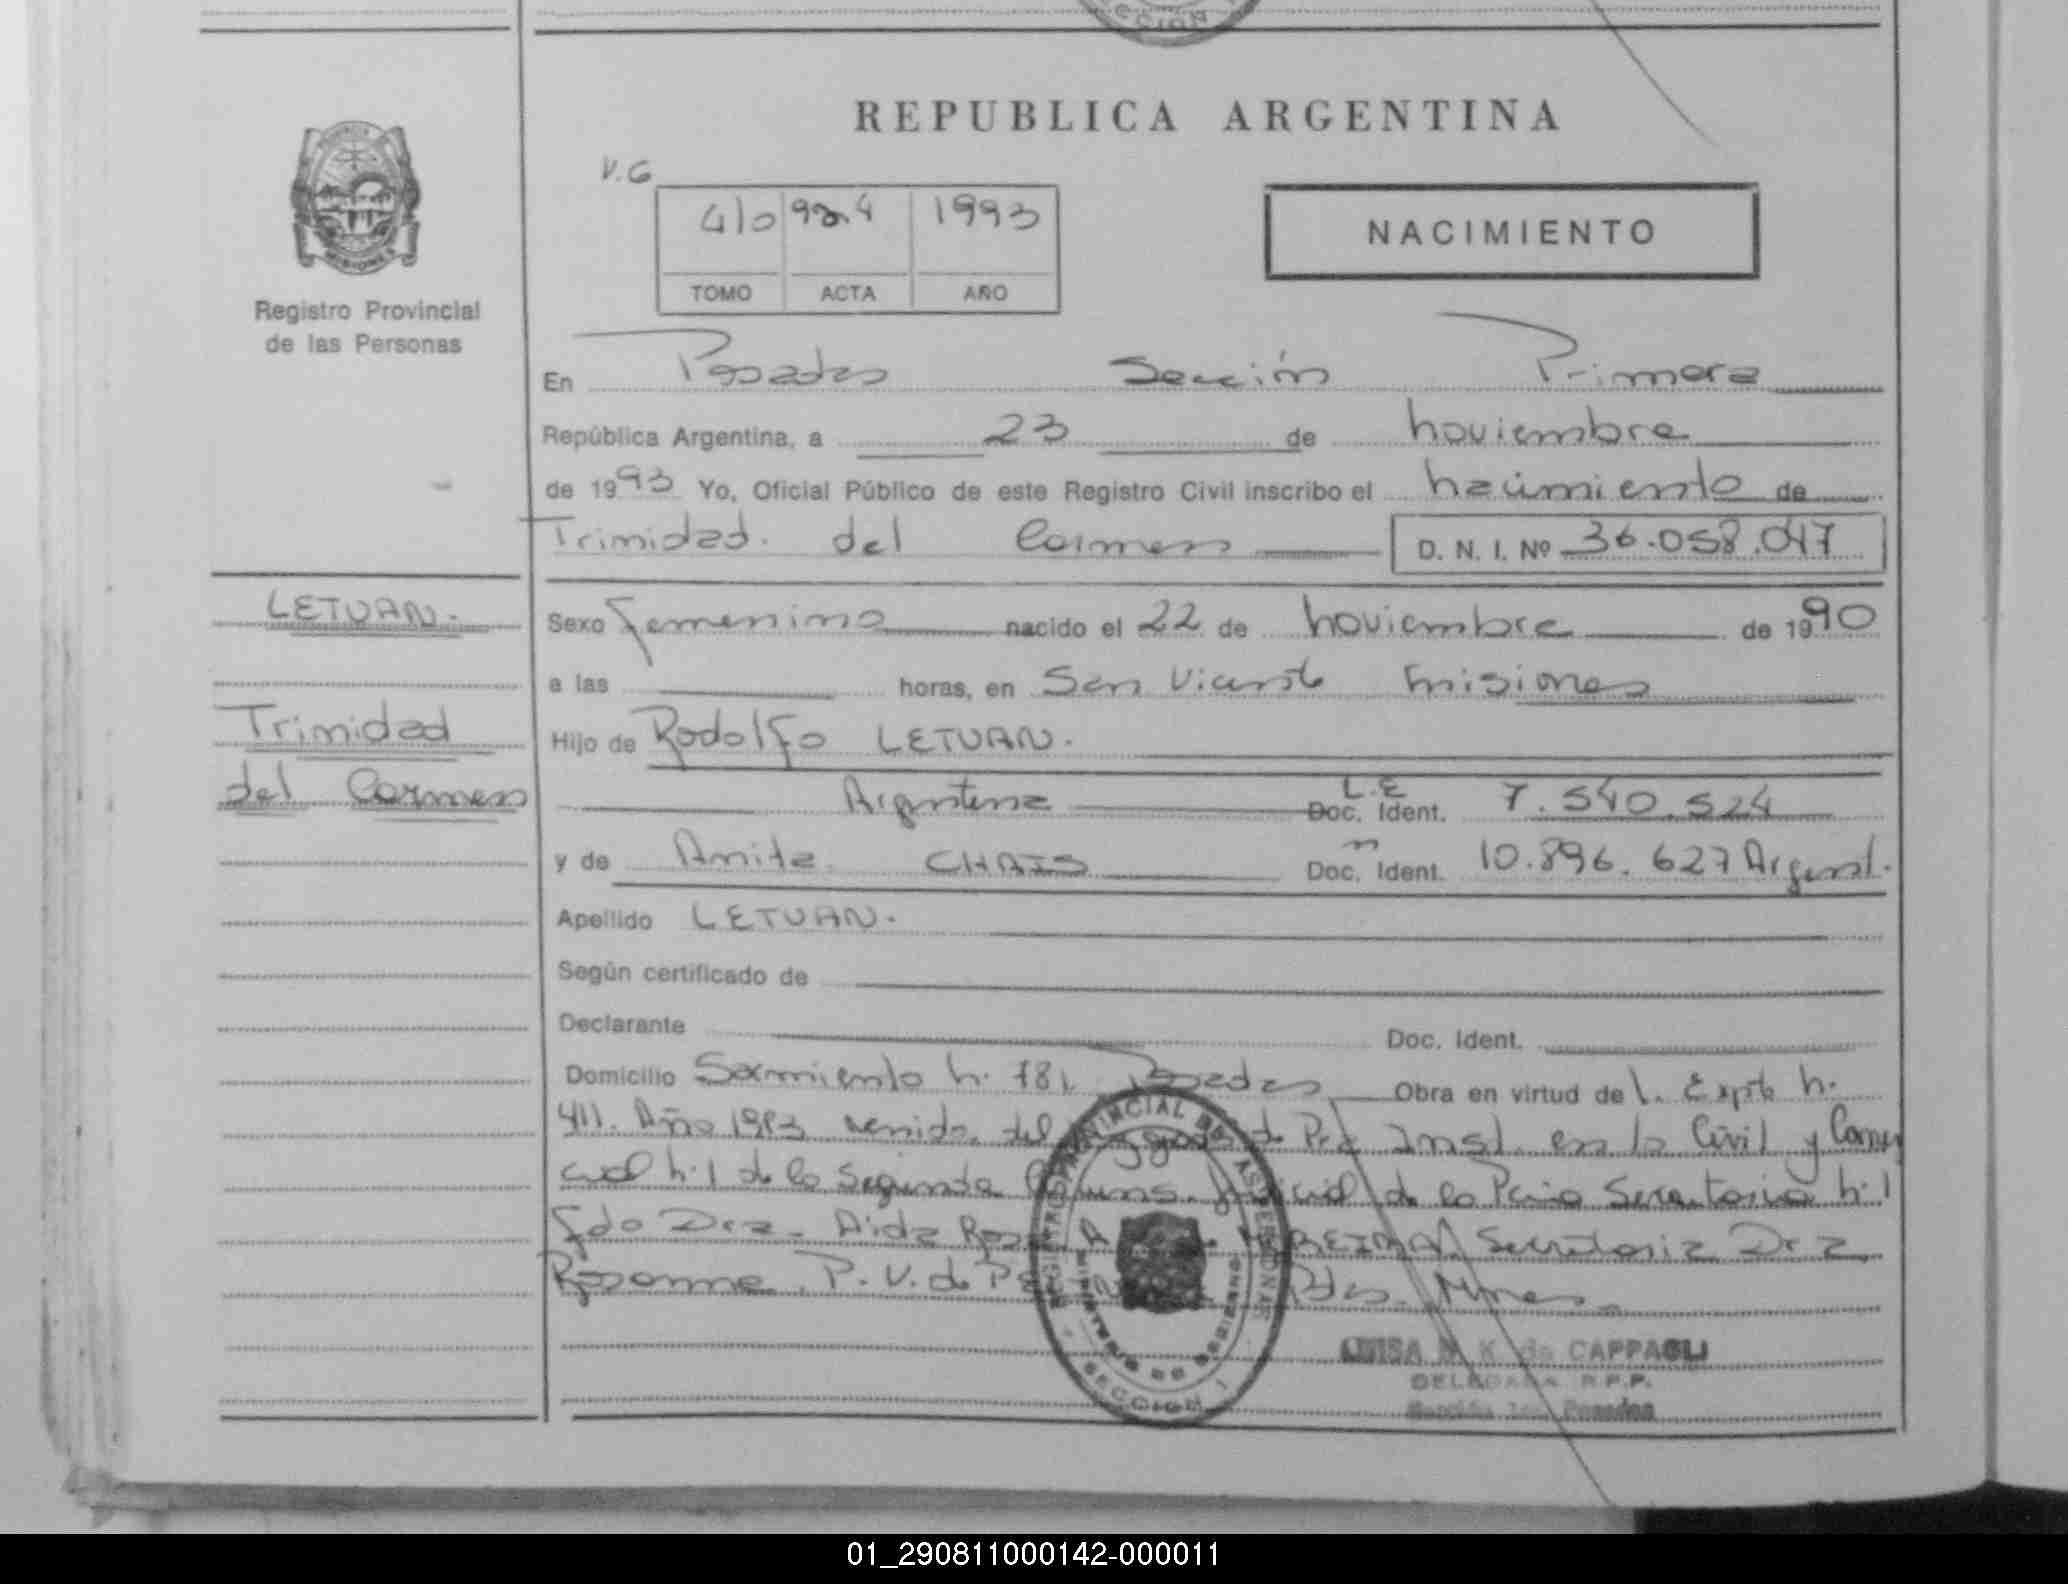 REPUBLICA ARGENTINA
V.G
NACIMIENTO
1993
TOMO ACTA AÑO
MISIONES
Registro Provincial
de las Personas
En Posadas Sección Primera
República Argentina, a 23 de noviembre
de 1993 Yo, Oficial Público de este Registro Civil inscribo el nacimiento de
Trinidad del Carmen D. N. I. Nº 36.058.047
LETUAN.
Trinidad
del Carmen
Sexo femenino nacido el 22 de noviembre de 1990
a las horas, en San Vicente Misiones
Hijo de Rodolfo LETUAN.
Argentina L.E Doc. Ident. 7.540.524
y de Anita CHAIS Doc. Ident. 10.896.627 Argent.
Apellido LETUAN.
Según certificado de
Declarante Doc. Ident.
Domicilio Sarmiento n. 781 Posadas Obra en virtud del Expte n.
411. Año 1993 venido del Juzgado de Pra Inst. en lo Civil y Comer
cial n.1 de la Segunda Circuns. Judicial de la Pcia Secretaria n.1
fdo Dra. Aida Secretaria Dra
Rosanna P. V. de Pdas. Mnes.
REGISTRO PROVINCIAL DE LAS PERSONAS
MINISTERIO DE GOBIERNO
SECCION 1
LUISA M. K. de CAPPAGLI
DELEGADA R.P.P.
Sección 1ra Posadas
01_290811000142-000011